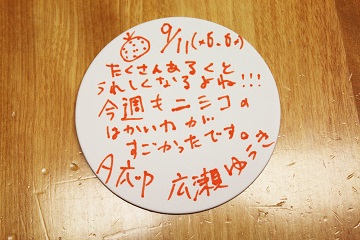 9/11(×6.6♪)
たくさんあるくと
うれしくなるよね!!!
今週もニミコの
はかいわがが
すごかったです。
A応P 広瀬ゆうき